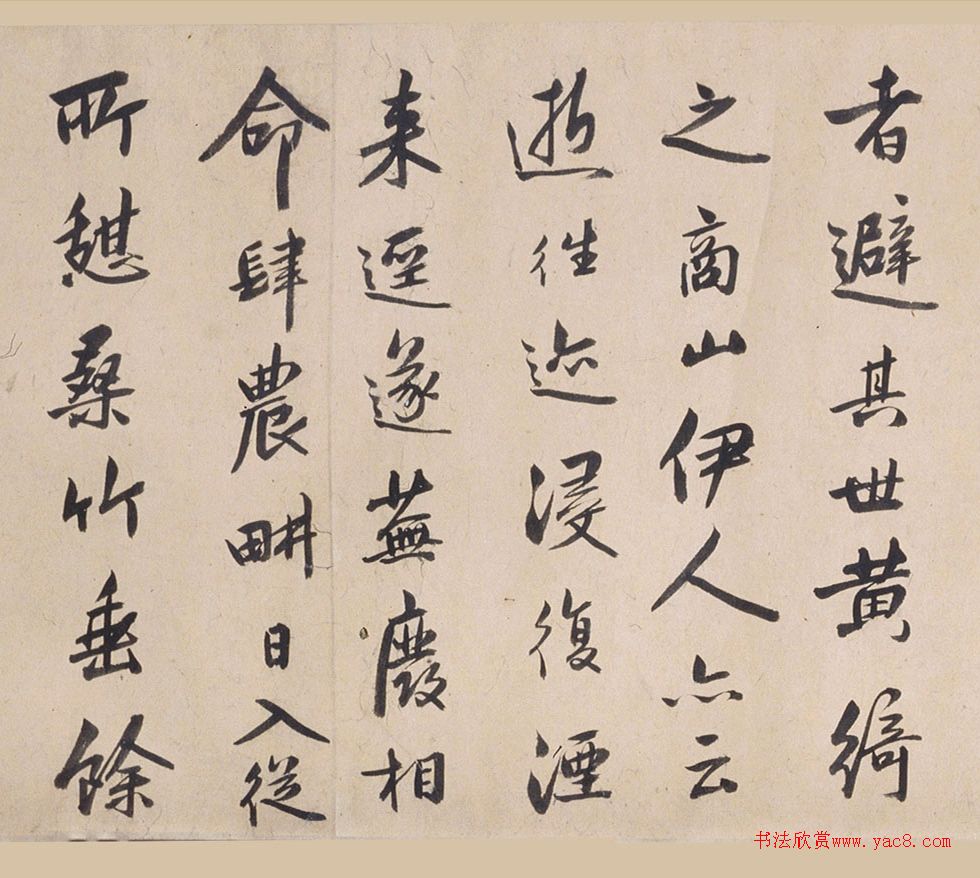 者避其世黄綺
之商山伊人亦云
逝往迹浸復湮
来逕遂蕪廢相
命肆農畊日入從
所憩桑竹垂餘
书法欣赏www.yac8.com